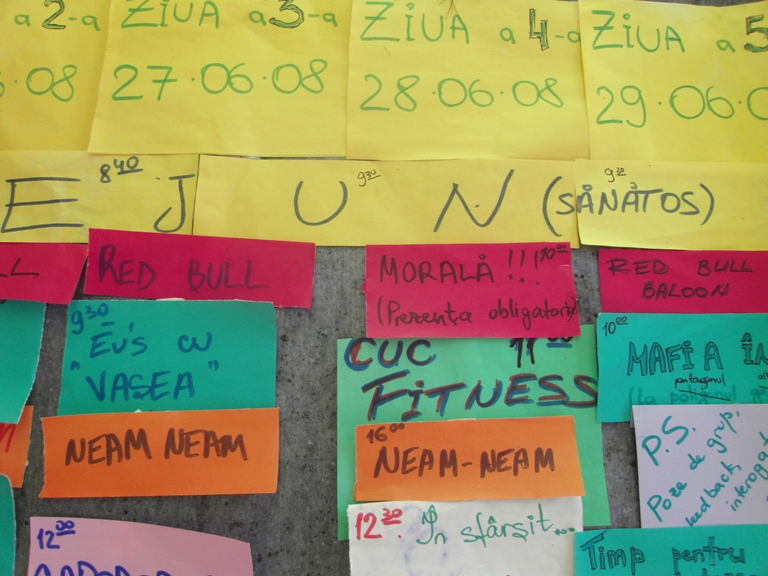 a 2-a
ZIUA a 3-a
ZIUA a 4-a
ZIUA a 5
.08
27.06.08
28.06.08
29.06.0
E 8:40 J U 9:30 N (SĂNĂTOS) 9:30
LL
RED BULL
MORALĂ !!! 10:00
(Prezența obligatorie)
RED BULL
BALOON
9:30
"EU'S CU
"VASEA"
CUC 11:00
FITNESS
10:00
MAFIA ÎN
pentagonul
(La poligonul
NEAM NEAM
16:00
NEAM-NEAM
P.S.
Poze de grup,
feedback,
interoga
12:00
12:30. În sfârșit...
Timp pentru